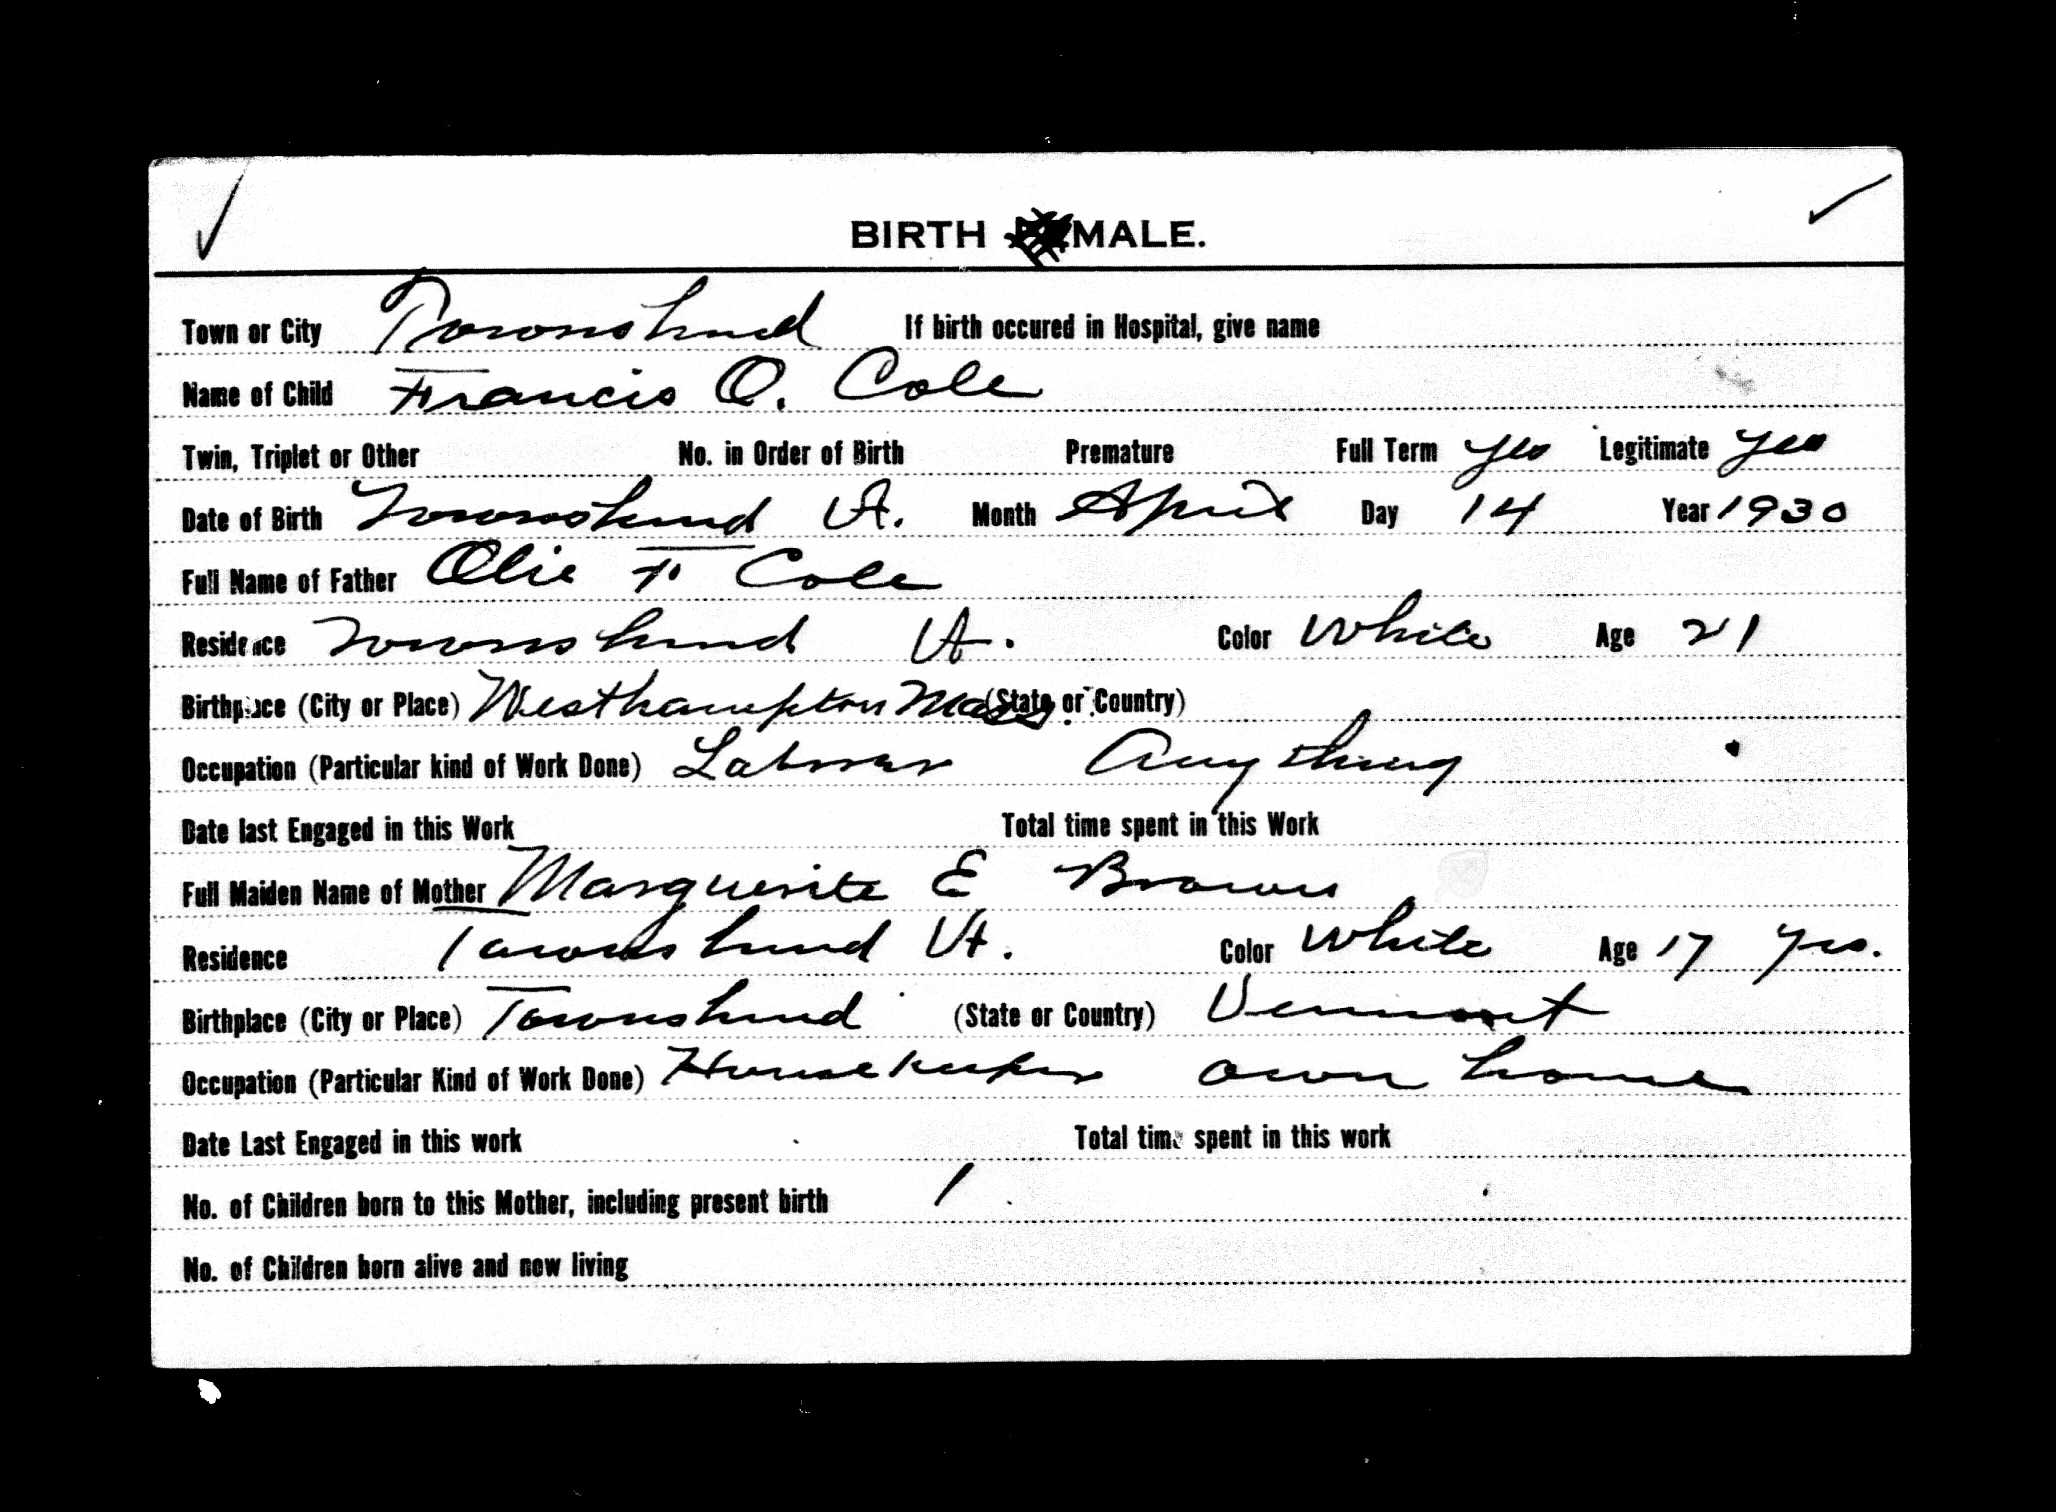 BIRTH MALE.
Town or City Townshend If birth occured in Hospital, give name
Name of Child Francis O. Cole
Twin, Triplet or Other No. in Order of Birth Premature Full Term yes Legitimate yes
Date of Birth Townshend Vt. Month April Day 14 Year 1930
Full Name of Father Olie F Cole
Residence Townshend Vt. Color White Age 21
Birthplace (City or Place) Westhampton Mass. (State or Country)
Occupation (Particular kind of Work Done) Laborer Anything
Date last Engaged in this Work Total time spent in this Work
Full Maiden Name of Mother Marguerite E Brown
Residence Townshend Vt. Color White Age 17 yrs.
Birthplace (City or Place) Townshend (State or Country) Vermont
Occupation (Particular Kind of Work Done) Housekeeper own home
Date Last Engaged in this work Total time spent in this work
No. of Children born to this Mother, including present birth 1
No. of Children born alive and now living